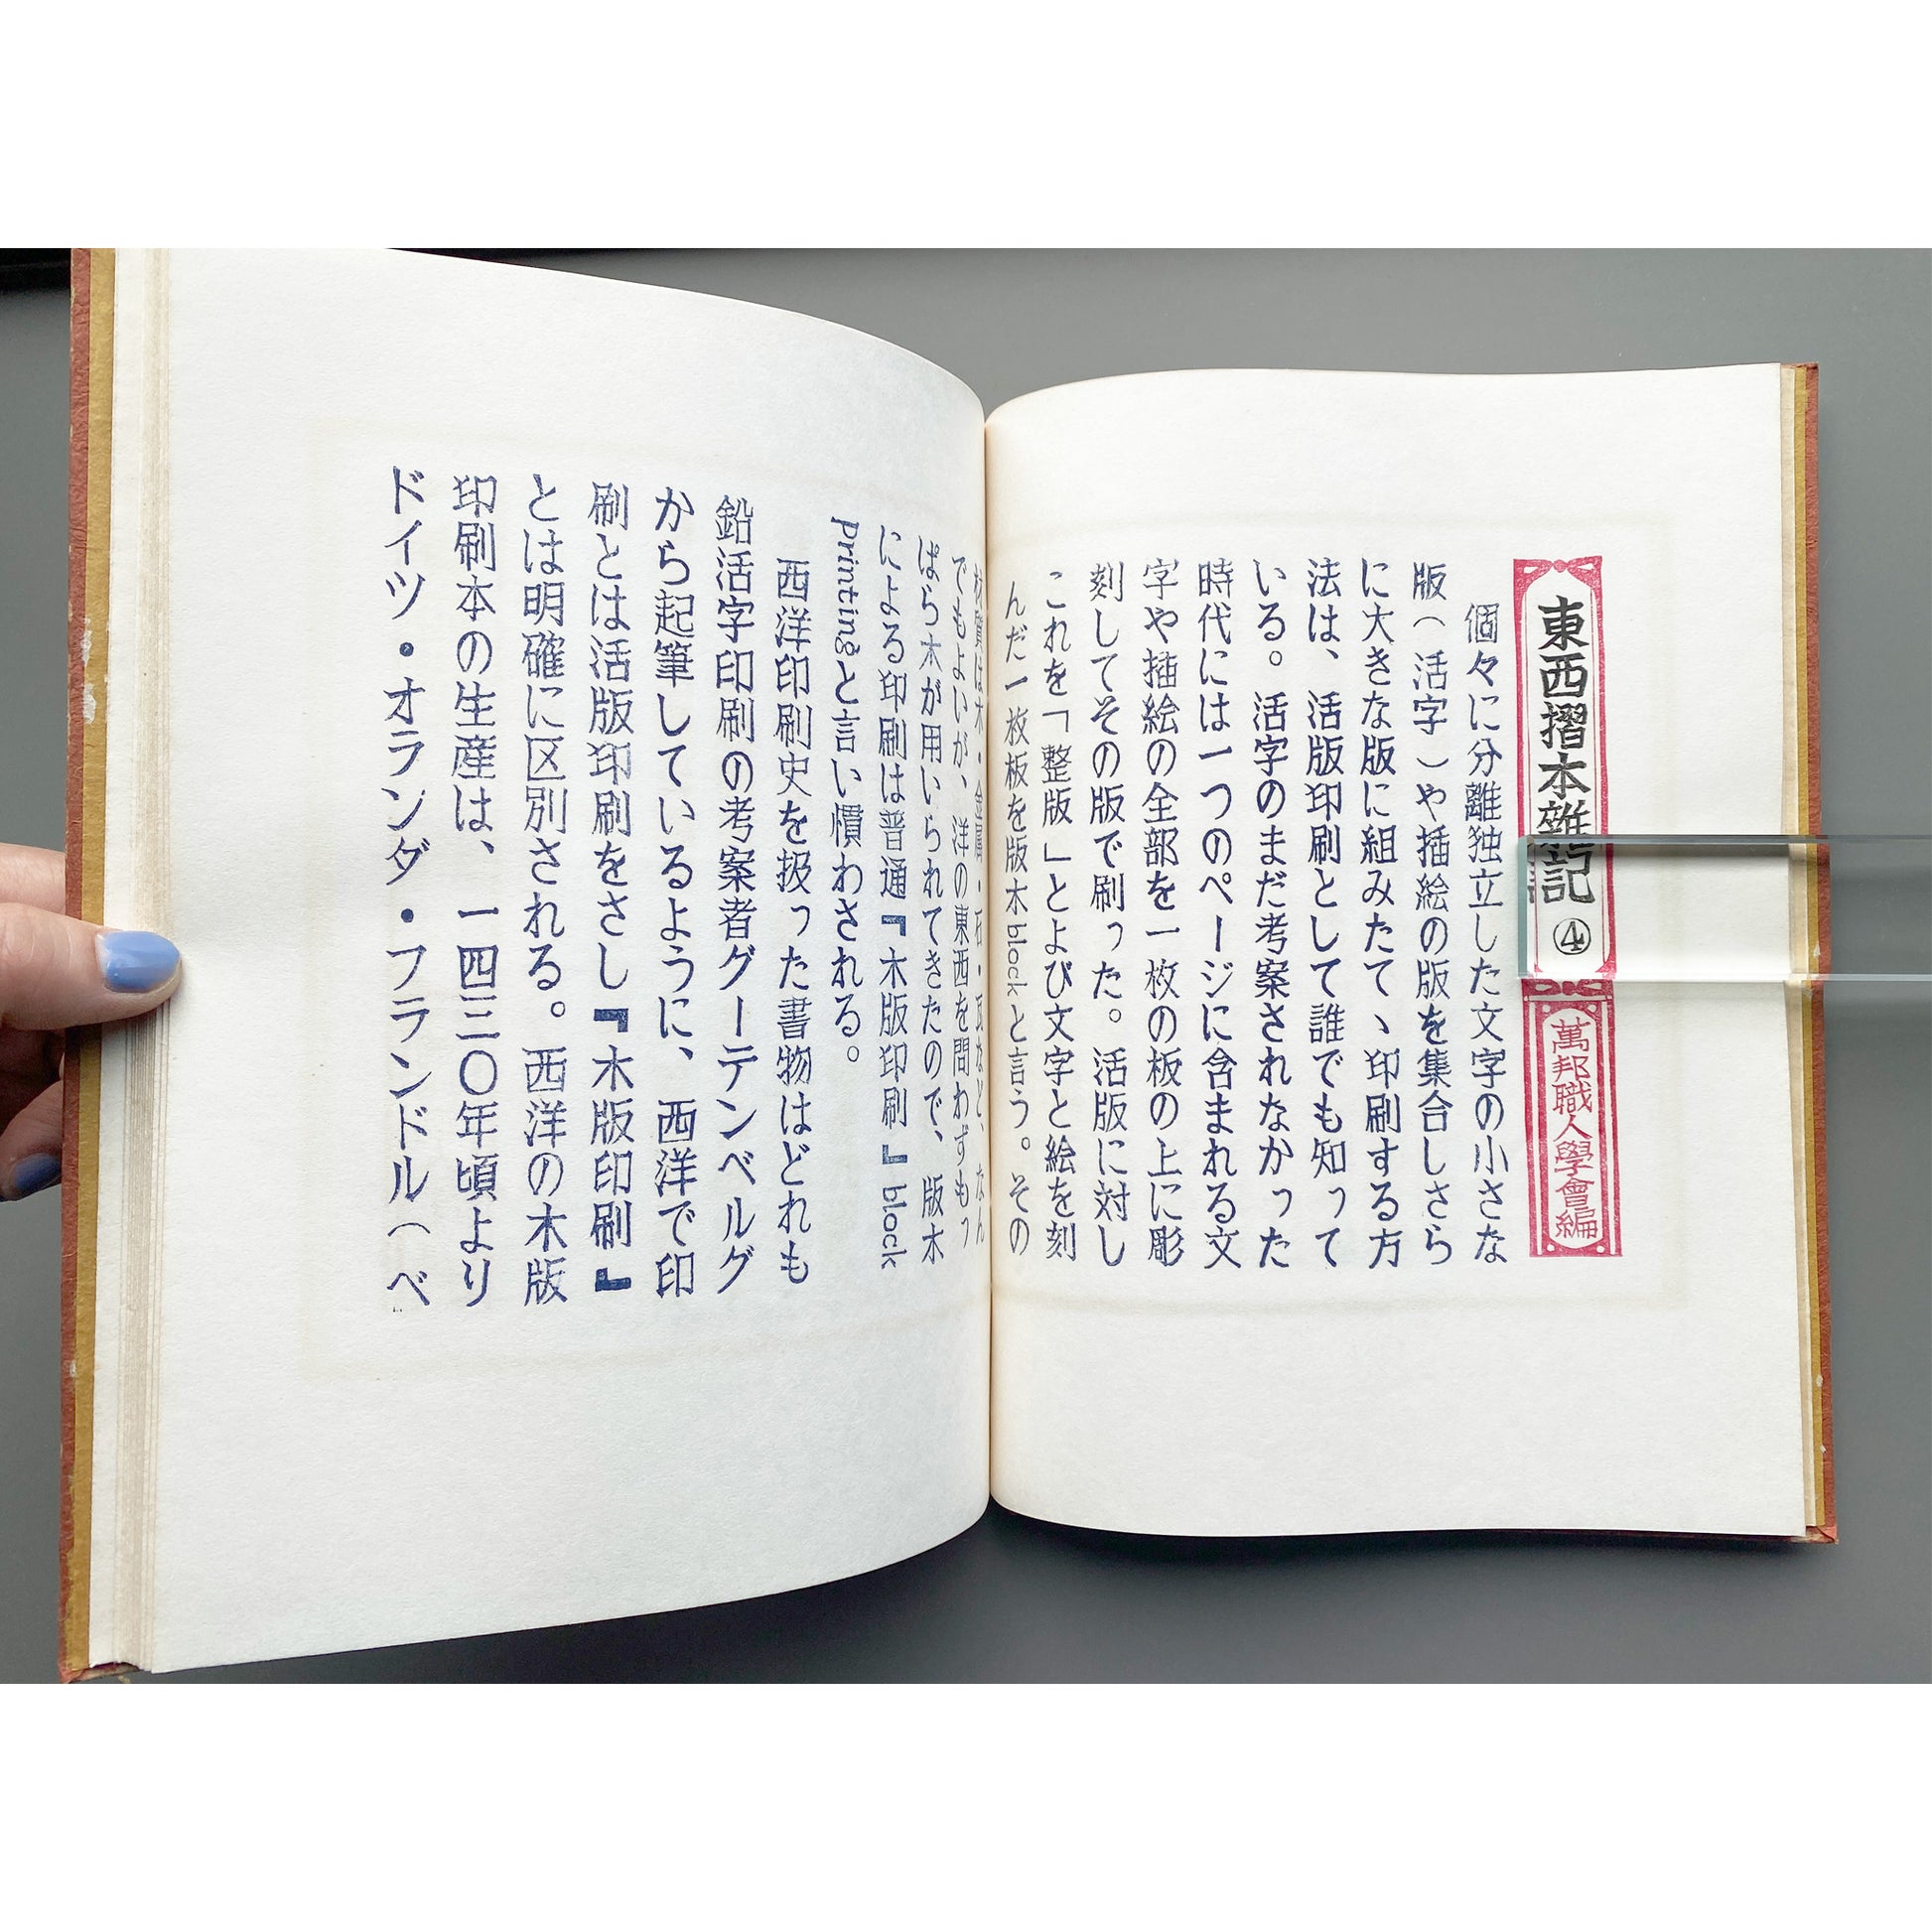 東西摺本雑記④
萬邦職人學會編
個々に分離独立した文字の小さな
版(活字)や插絵の版を集合しさら
に大きな版に組みたて、印刷する方
法は、活版印刷として誰でも知って
いる。活字のまだ考案されなかった
時代には一つのページに含まれる文
字や插絵の全部を一枚の板の上に彫
刻してその版で刷った。活版に対し
これを「整版」とよび文字と絵を刻
んだ一枚板を版木blockと言う。その
材質は木・金属・石・瓦など、なん
でもよいが、洋の東西を問わずもっ
ぱら木が用いられてきたので、版木
による印刷は普通『木版印刷』block
printingと言い慣わされる。
西洋印刷史を扱った書物はどれも
鉛活字印刷の考案者グーテンベルグ
から起筆しているように、西洋で印
刷とは活版印刷をさし『木版印刷』
とは明確に区別される。西洋の木版
印刷本の生産は、一四三〇年頃より
ドイツ・オランダ・フランドル(ベ